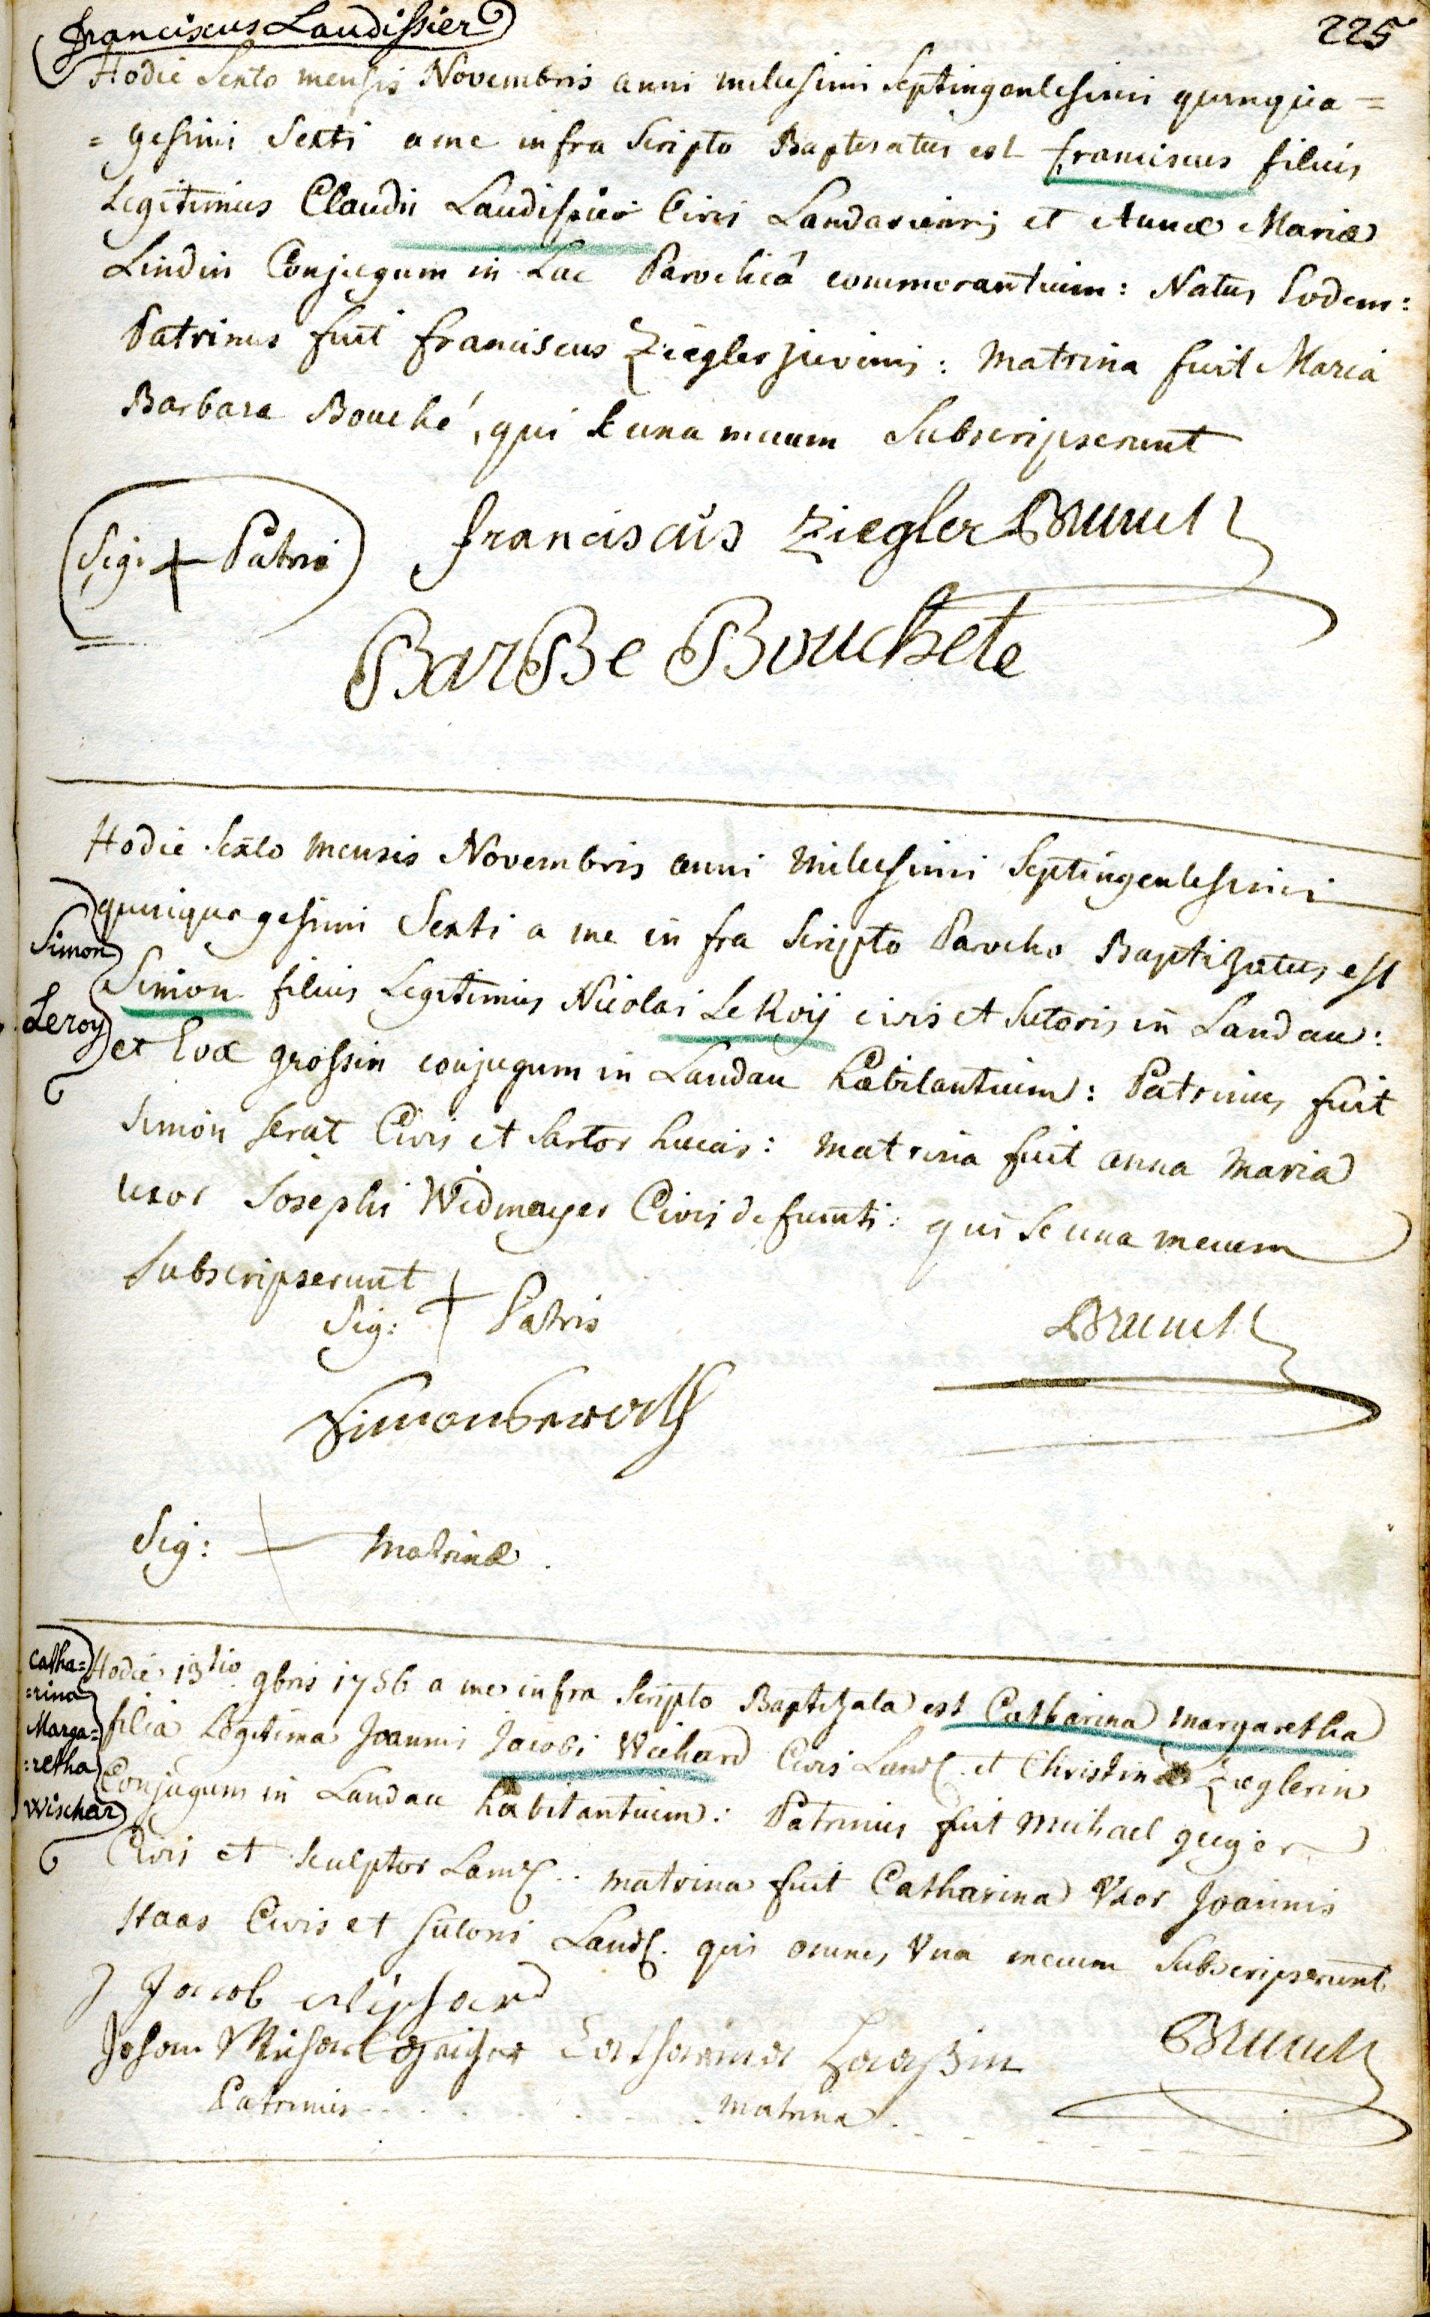 Franciscus Laudissier
225
Hodie Sexto mensis Novembris anni millesimi Septingentesimi quinqua =
= gesimi Sexti a me infra Scripto Baptisatus est franciscus filius
Legitimus Claudii Laudissier Civis Landaviensis et Annæ Mariæ
Lindin Conjugum in hac Parochiâ commorantium: Natus Eodem:
Patrinus fuit franciscus Ziegler juvenis: Matrina fuit Maria
Barbara Bouché, qui se una mecum Subscripserunt
Sig: + Patris
franciscus Ziegler Brunck
BarBe Bouchete
Hodie Sexto mensis Novembris anni Millesimi Septingentesimi
quinquagesimi Sexti a me in fra Scripto Parocho Baptizatus est
Simon
Leroy
Simon filius Legitimus Nicolai Le Roÿ civis et Sutoris in Landau:
et Evæ grossin conjugum in Landau habitantium: Patrinus fuit
Simon Serat Civis et Sartor hucais: matrina fuit anna Maria
uxor Josephi Widmayer Civis defuncti: qui Se una mecum
Subscripserunt
Sig: + Patris
Brunck
Simon
Sig: + Matrinæ.
Catha=
=rina
Marga=
:retha
Wischar
Hodie 13tio 9bris 1756 a me infra Scripto Baptizata est Catharina Margaretha
filia Legitima Joannis Jacobi Wichard Civis Land. et Christinæ Zieglerin
Conjugum in Landau habitantium: Patrinus fuit Michael geiger
Civis et Sculptor Land.. matrina fuit Catharina Uxor Joannis
Haas Civis et Sutoris Land. qui omnes Una mecum Subscripserunt
J Jacob Wichard
Johan Michael Geiger Catharina Haaßin
Brunck
Patrinus . . . . . . . matrina . . .